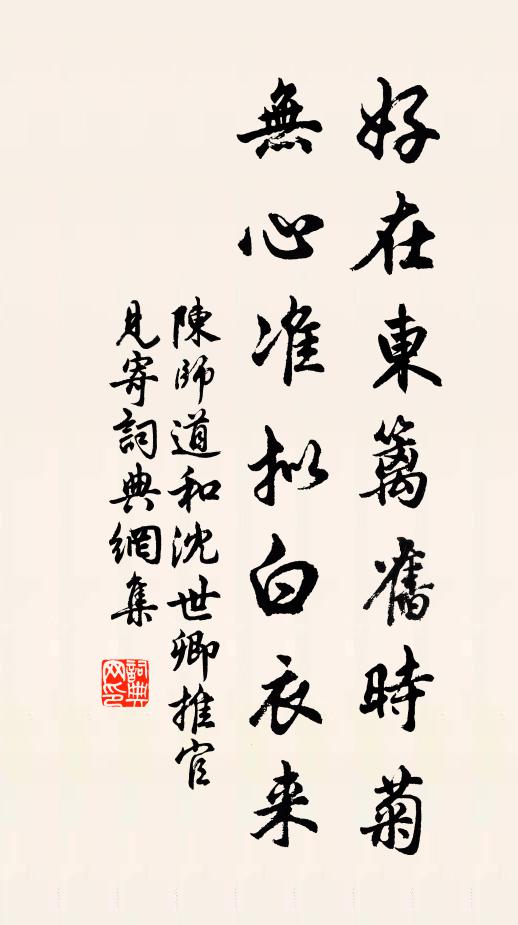 好在東籬舊時菊
無心准拟白衣来
陳師道和沈世卿推官
見寄詞典網集
詞典
网印